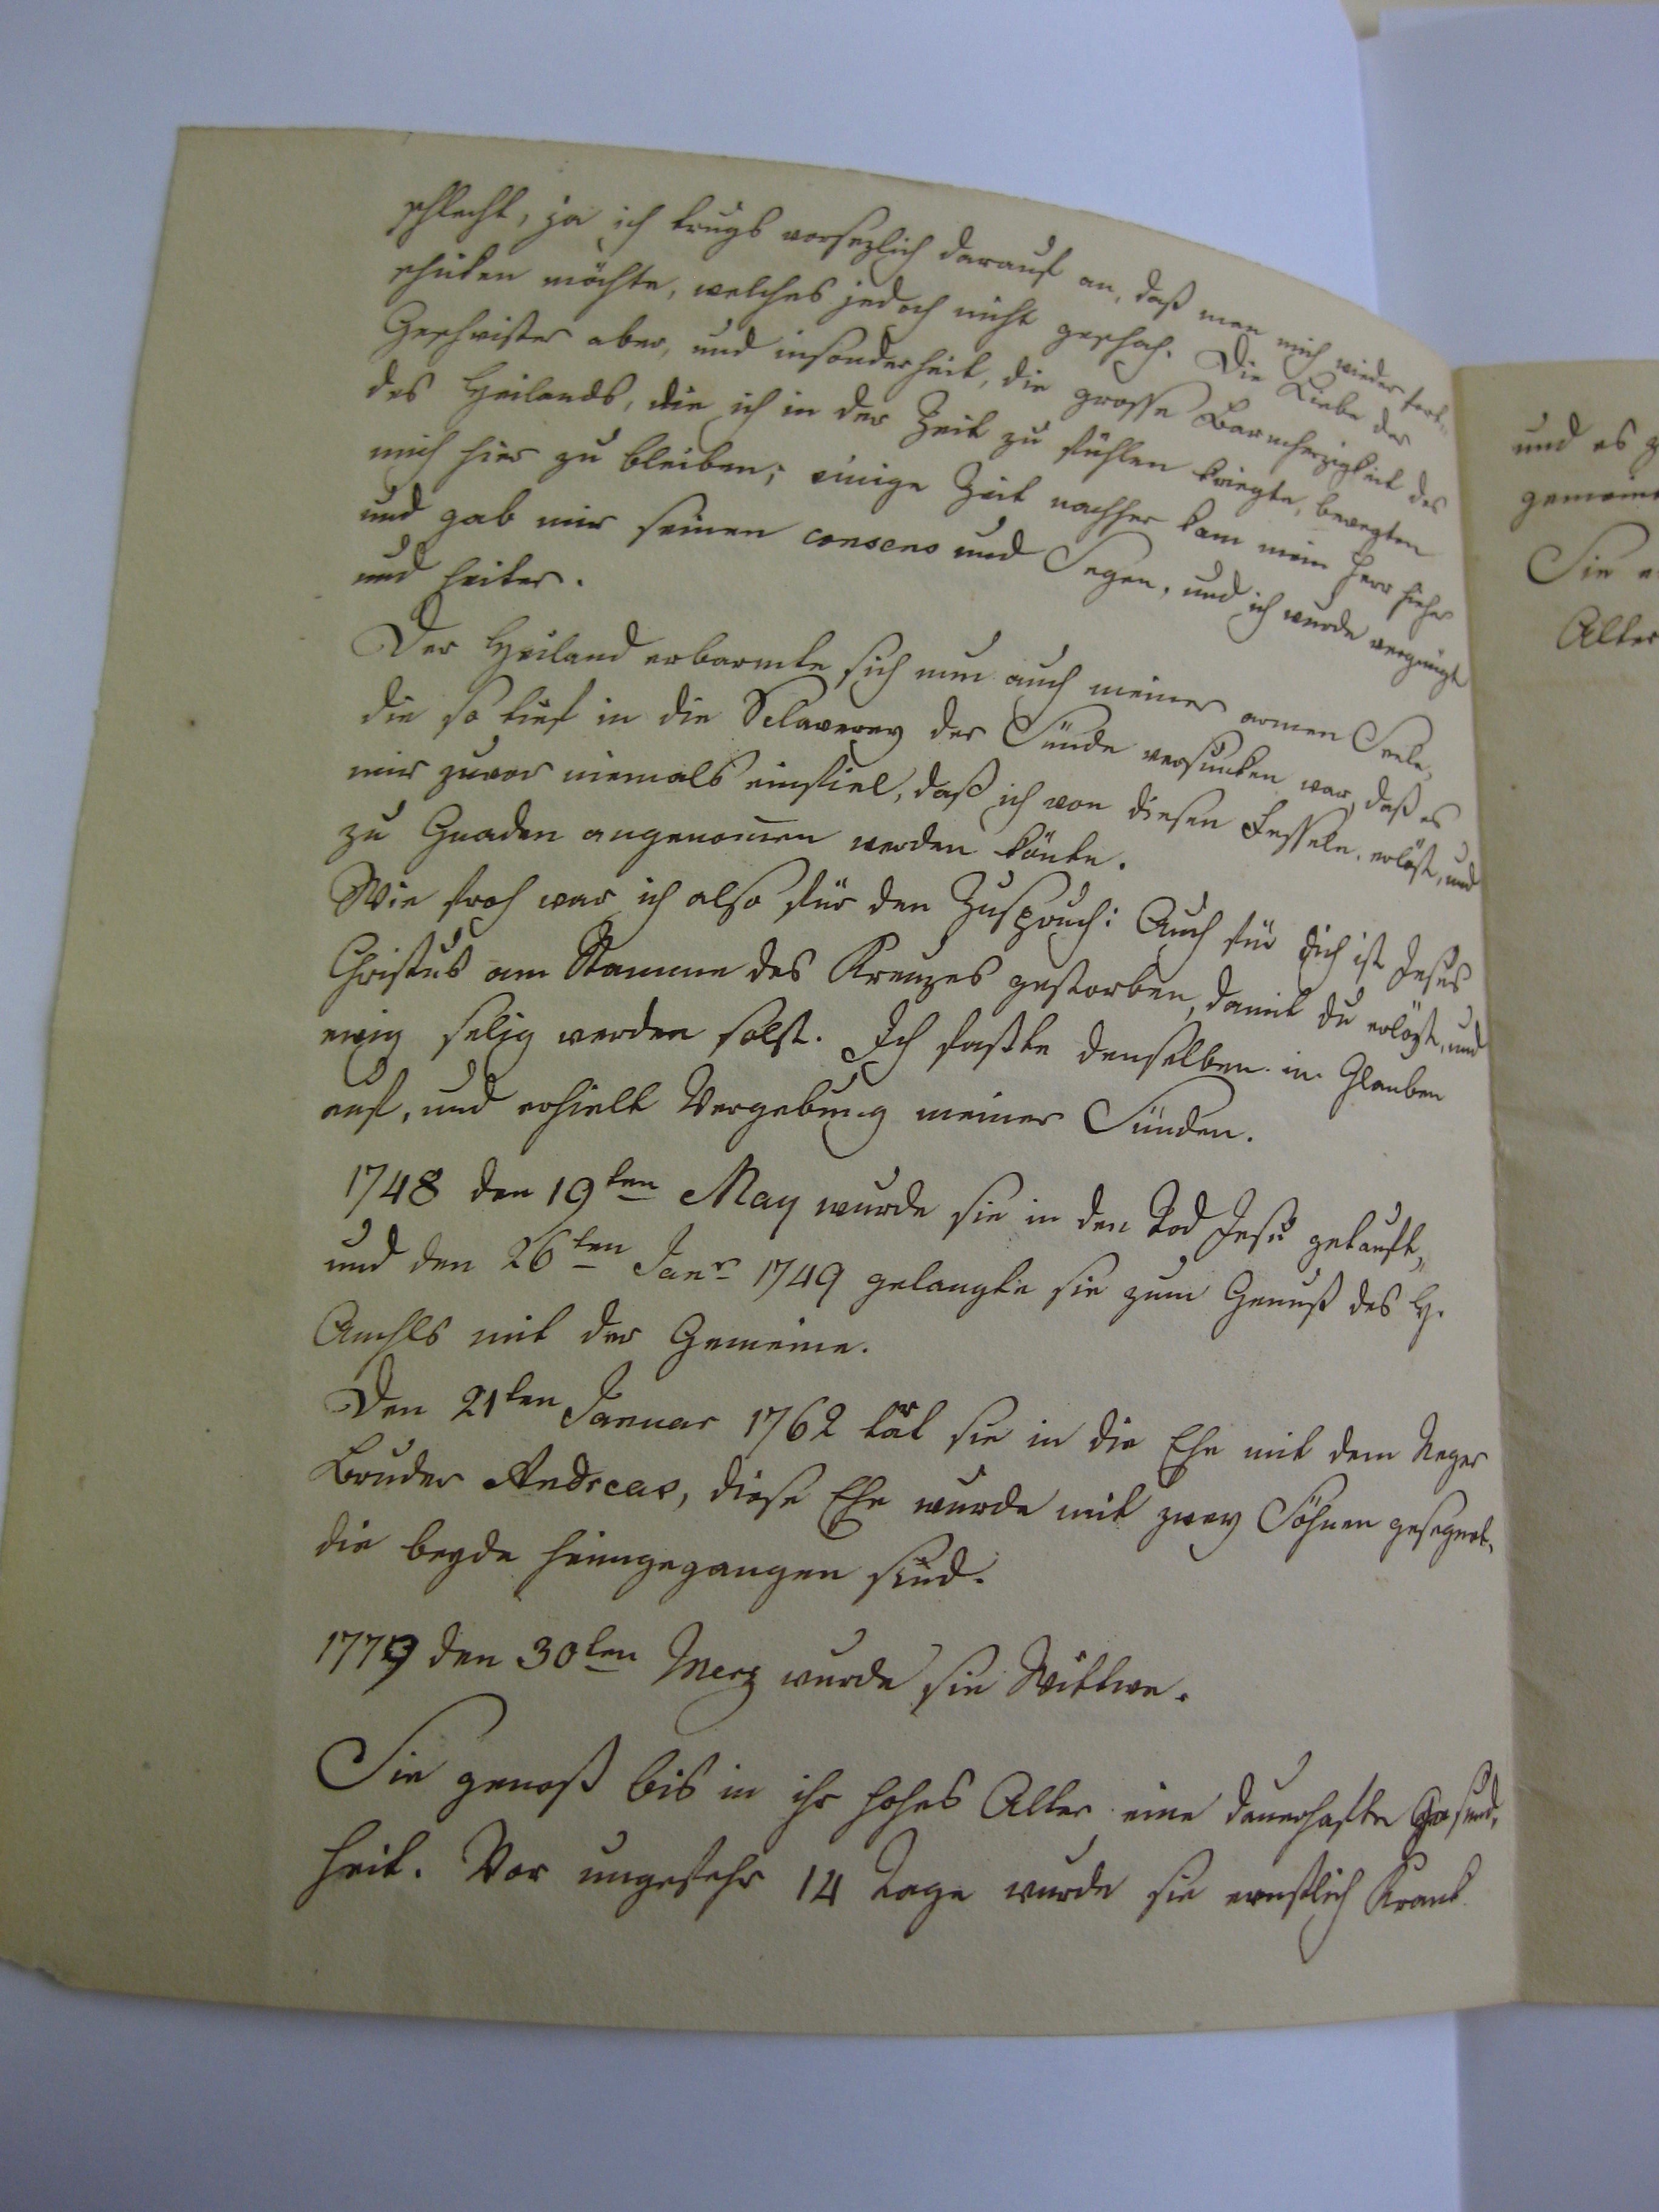 schlecht, ja ich trugs vorsezlich darauf an, daß man mich wieder fort-
schiken möchte, welches jedoch nicht geschah. Die Liebe der
Geschwister aber, und insonderheit, die grosse Barmherzigkeit des
des Heilands, die ich in der Zeit zu fühlen kriegte, bewegten
mich hier zu bleiben; einige Zeit nachher kam mein Herr hieher
und gab mir seinen consens und Segen, und ich wurde vergnügt
und heiter.
Der Heiland erbarmte sich nun auch meiner armen Seele,
die so tief in die Sclaverey der Sünde versunken war, daß es
mir zuvor niemals einfiel, daß ich von diesen Fesseln erlöst, und
zu Gnaden angenom̅en werden könte.
Wie froh war ich also für den Zuspruch: Auch für dich ist Jesus
Christus am Stamme des Kreuzes gestorben, damit du erlöst, und
ewig selig werden solst. Ich faßte denselben im Glauben
auf, und erhielt Vergebung meiner Sünden.
1748 den 19ten May wurde sie in den Tod Jesu getauft,
und den 26ten Janr 1749 gelangte sie zum Genuß des H.
Amhls mit der Gemeine.
Den 21ten Januar 1762 trat sie in die Ehe mit dem Neger
Bruder Andreas, diese Ehe wurde mit zwey Söhnen gesegnet,
die beyde heimgegangen sind.
1779 den 30ten Merz wurde sie Wittwe.
Sie genoß bis in ihr hohes Alter eine dauerhafte Gesund-
heit. Vor ungefehr 14 Tage wurde sie ernstlich Krank
und es
gemein
Sie
Alter